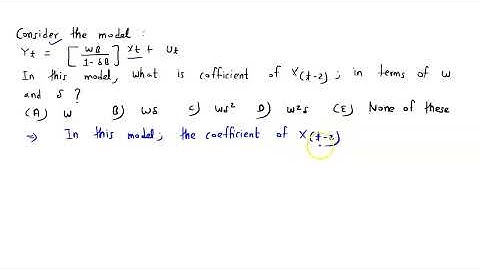 Consider the model :
Yt = [ωB / 1 - δB] Xt + Ut
In this model, what is cofficient of X(t-2) ; in terms of ω
and δ ?
(A) ω B) ωδ C) ωδ² D) ω²δ (E) None of these
⇒ In this model; the coefficient of X(t-2)